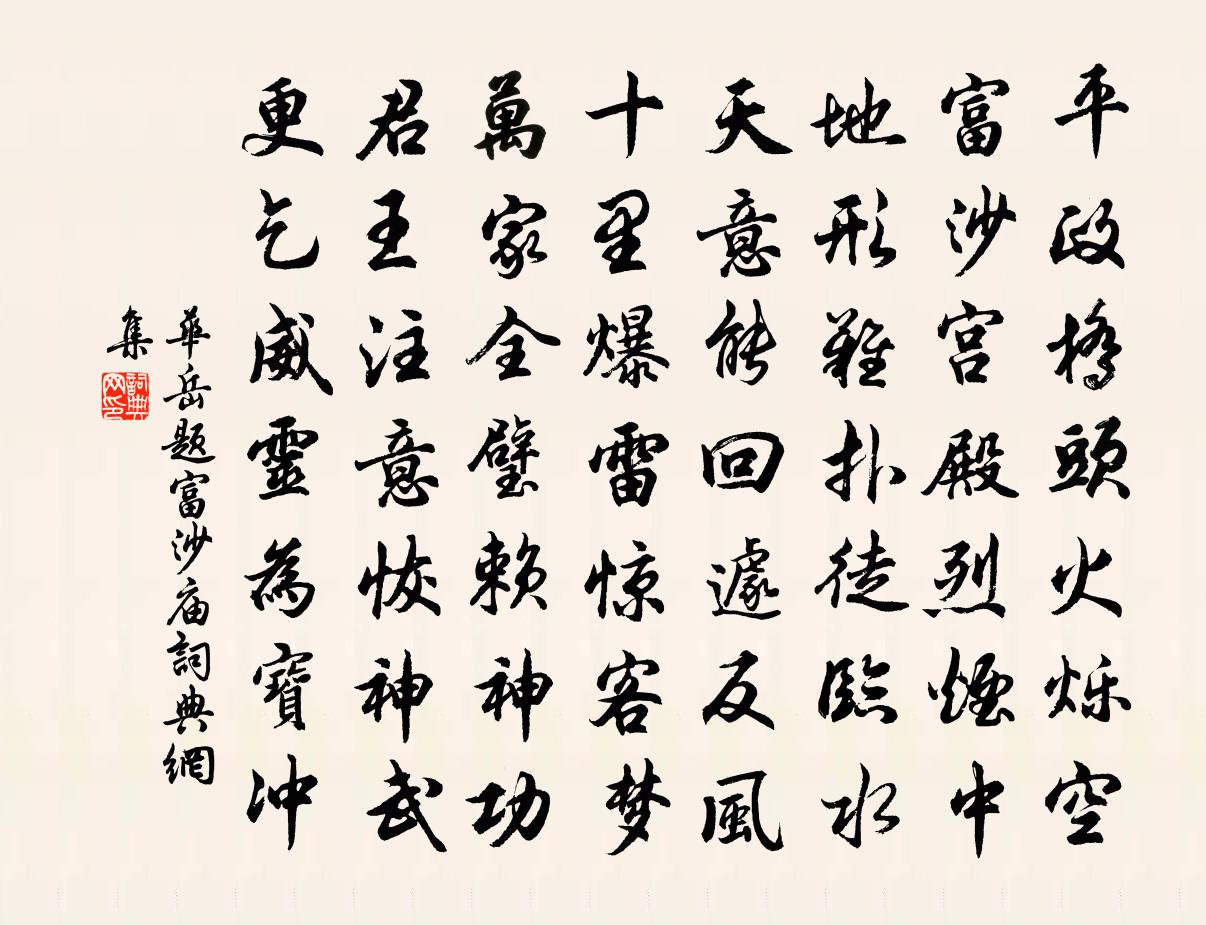 平政橋頭火烁空
富沙宫殿烈煙中
地形難扑徒臨水
天意能回遽反風
十里爆雷惊客梦
萬家全璧赖神功
君王注意恢神武
更乞威靈為寳冲
華岳题富沙庙詞典網
集
詞典网印